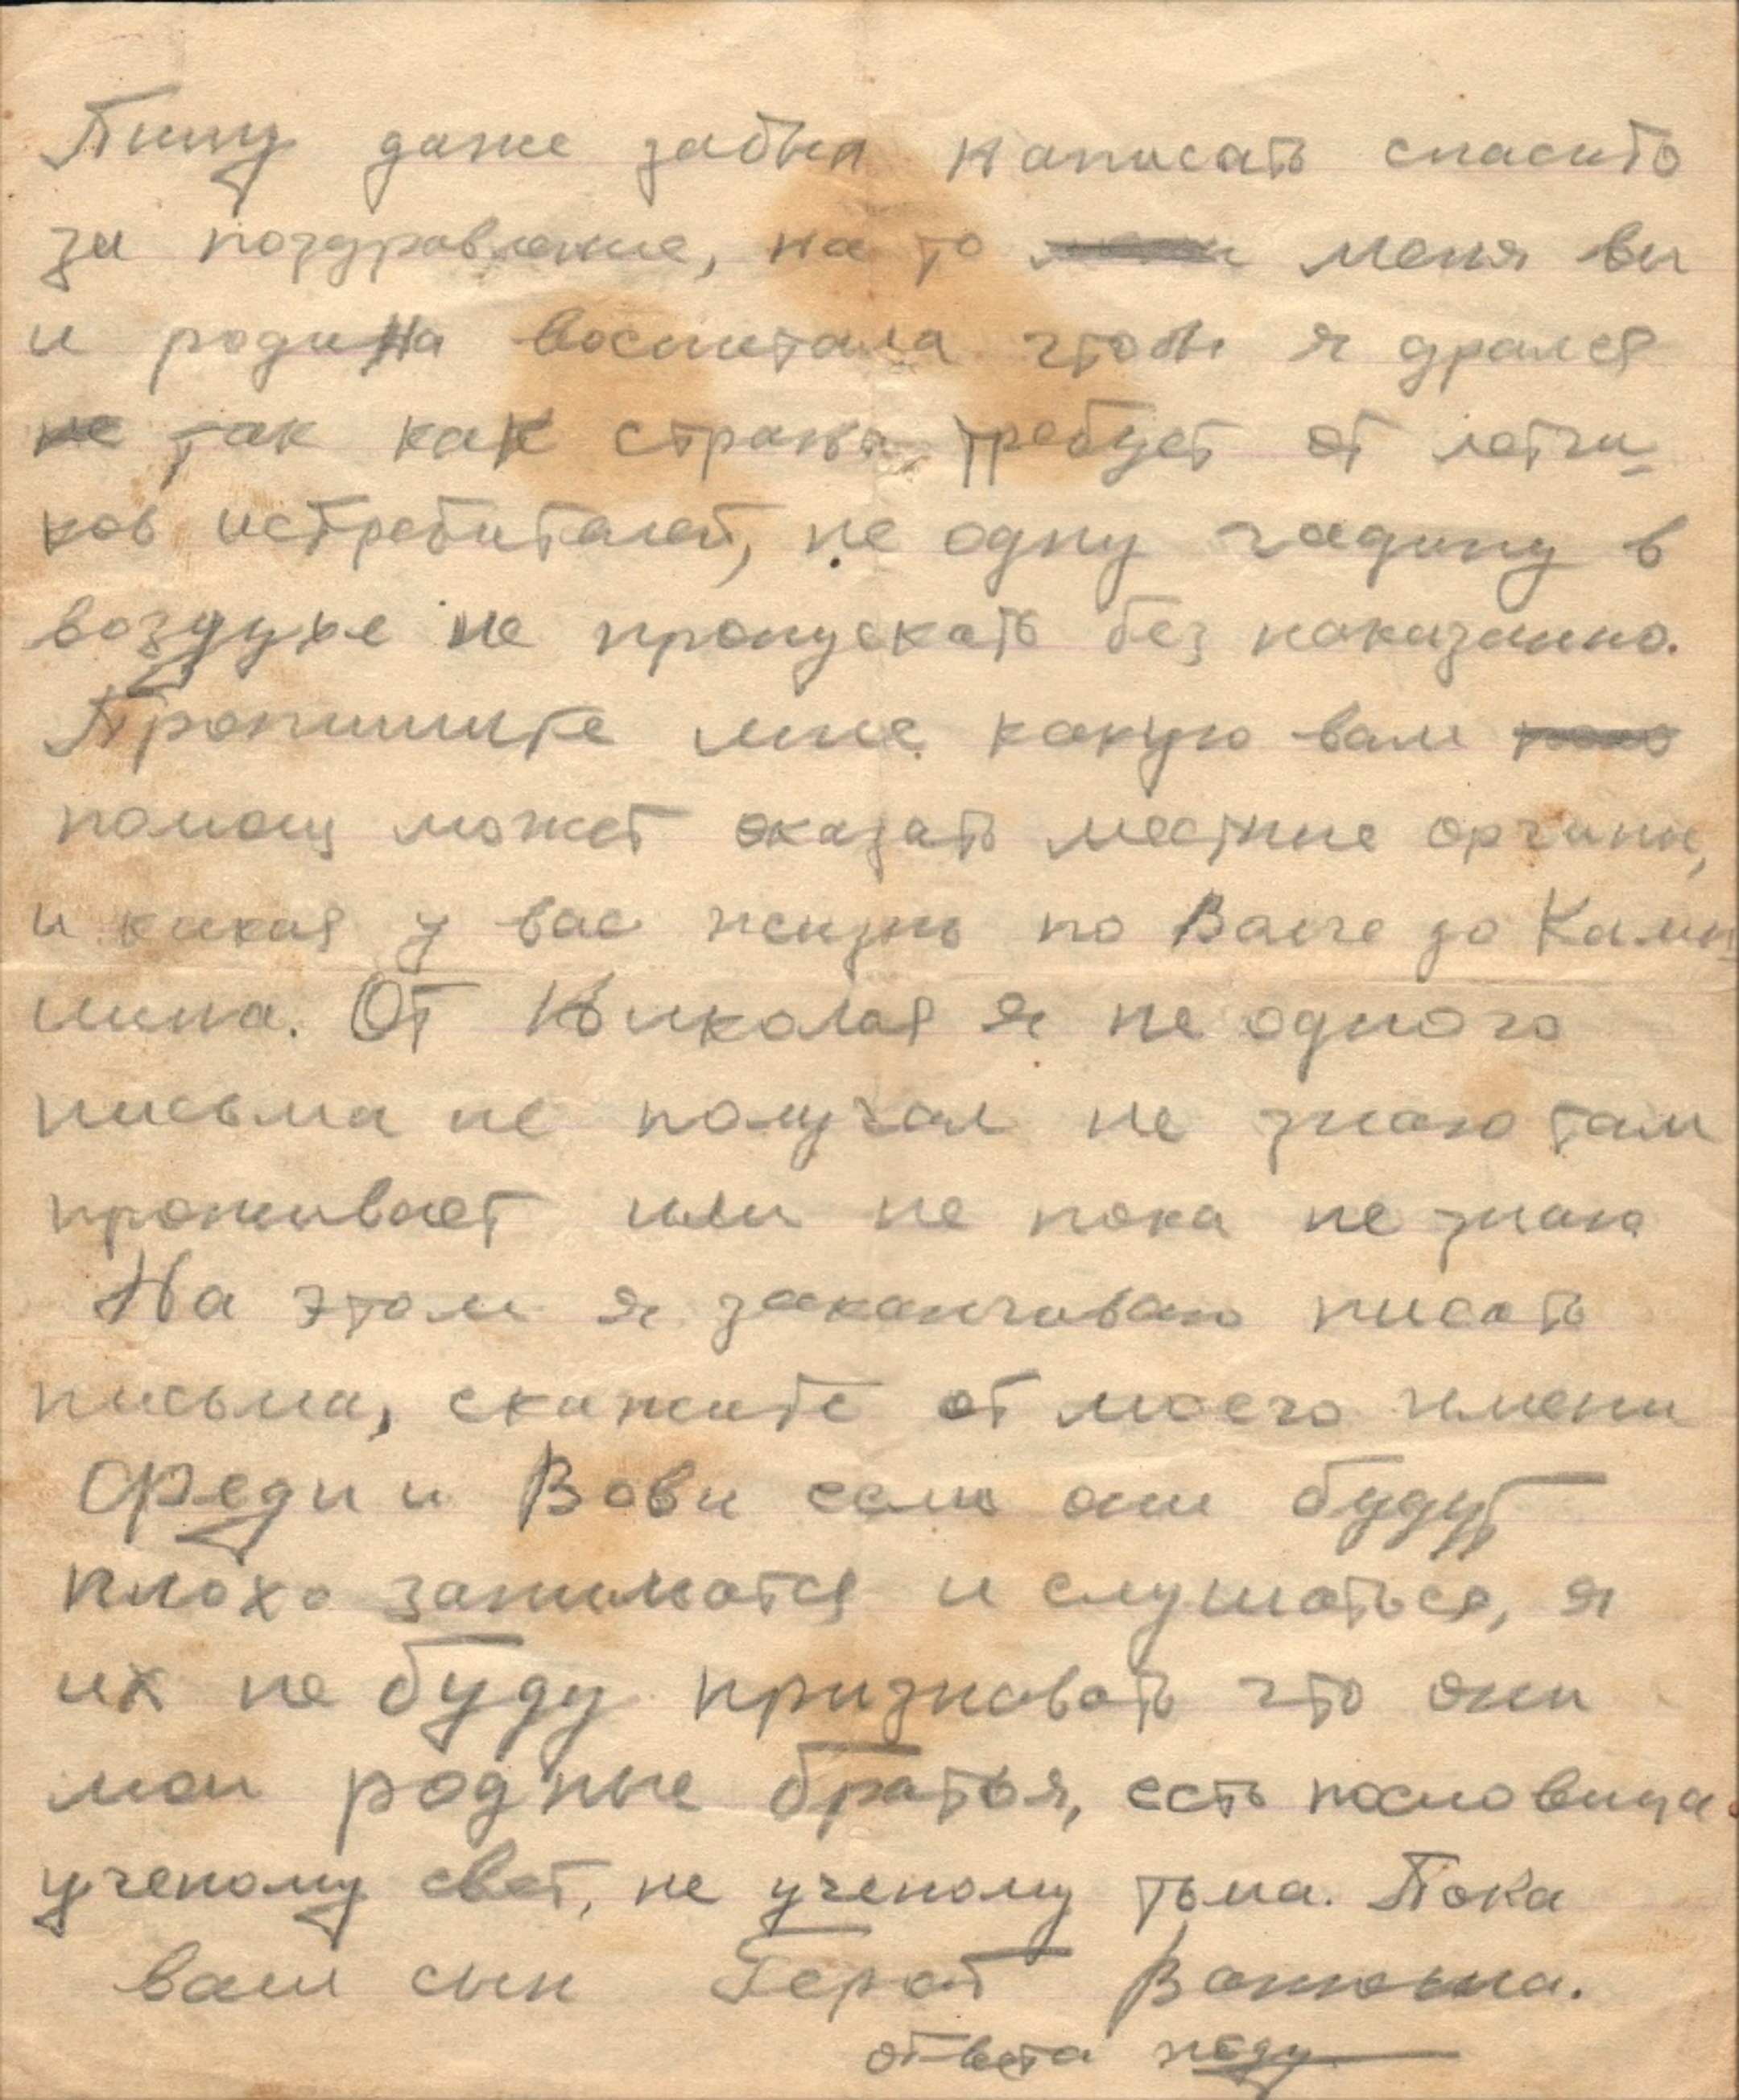 Пишу даже забыл написать спасибо
за поздравление, на то меня вы
и родина воспитала чтобы я дрался
не так как страна требует от летчи-
ков истребителей, не одну гадину в
воздухе не пропускать без наказанно.
Пропишите мне какую вам
помощ может оказать местные органы,
и какая у вас жизнь по Волге до Камы-
шина. От Николая я не одного
письма не получал не знаю там
проживает или не пока не знаю
На этом я заканчиваю писать
письма, скажите от моего имени
Феди и Вовы если они будут
плохо заниматся и слушаться, я
их не буду признавать что они
мои родные братья, есть пословица
ученому свет, не ученому тьма. Пока
ваш сын Герой Ванюша.
ответа жду